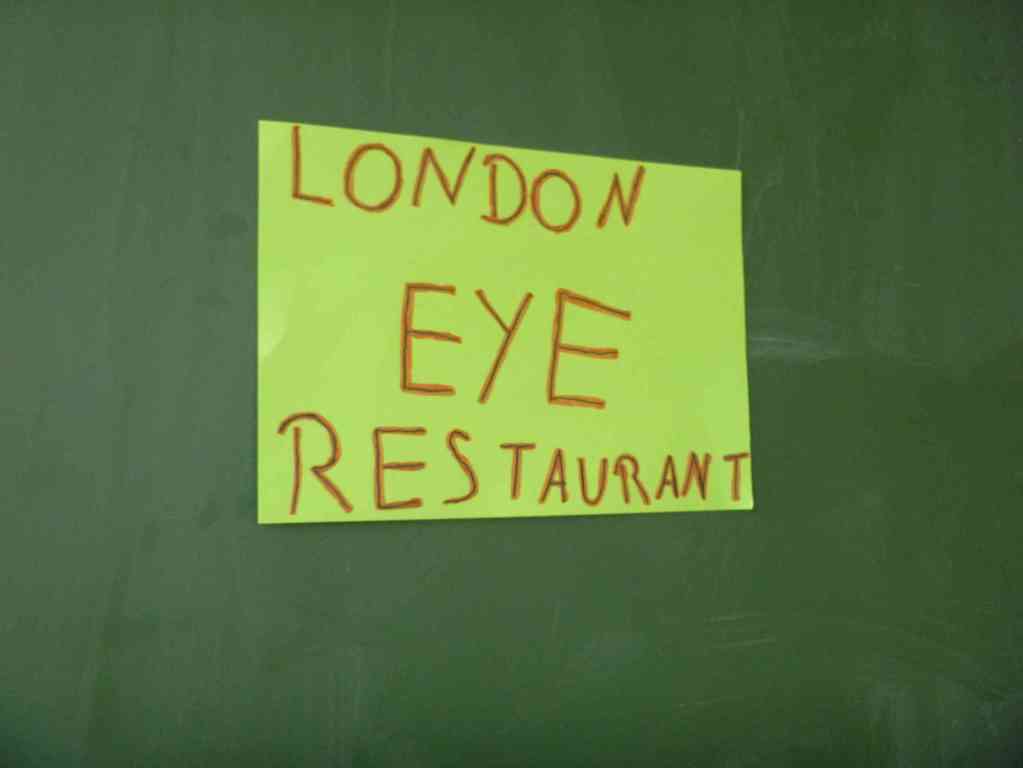 LONDON
EYE
RESTAURANT